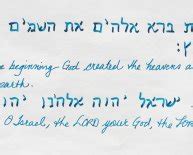 ת ברא אלהים את השמים
ץ:
e beginning God created the heavens a
earth.
ישראל יהוה אלהינו יהו
O Israel, the LORD your God, the Lor